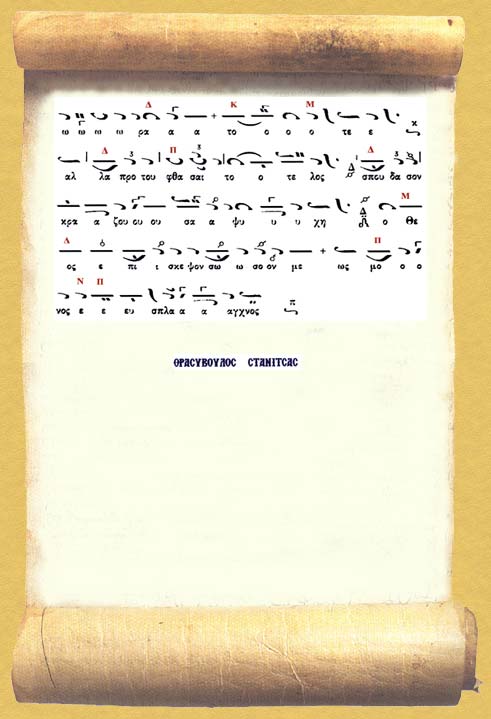 Δ Κ Μ
ω ω ω ω ρα α α το ο ο ο τε ε κ
Δ Π Δ
αλ λα προ του φθα σαι το ο τε λος σπου δα σον
Μ
κρα α ζου ου ου σα α ψυ υ υ χη ο Θε
Δ Π
ος ε πι ι σκε ψον σω ω σο ον με ως μο ο ο
Ν Π
νος ε ε ευ σπλα α α αγχνος π
ΘΡΑCΥΒΟΥΛΟC CΤΑΝΙΤCΑC